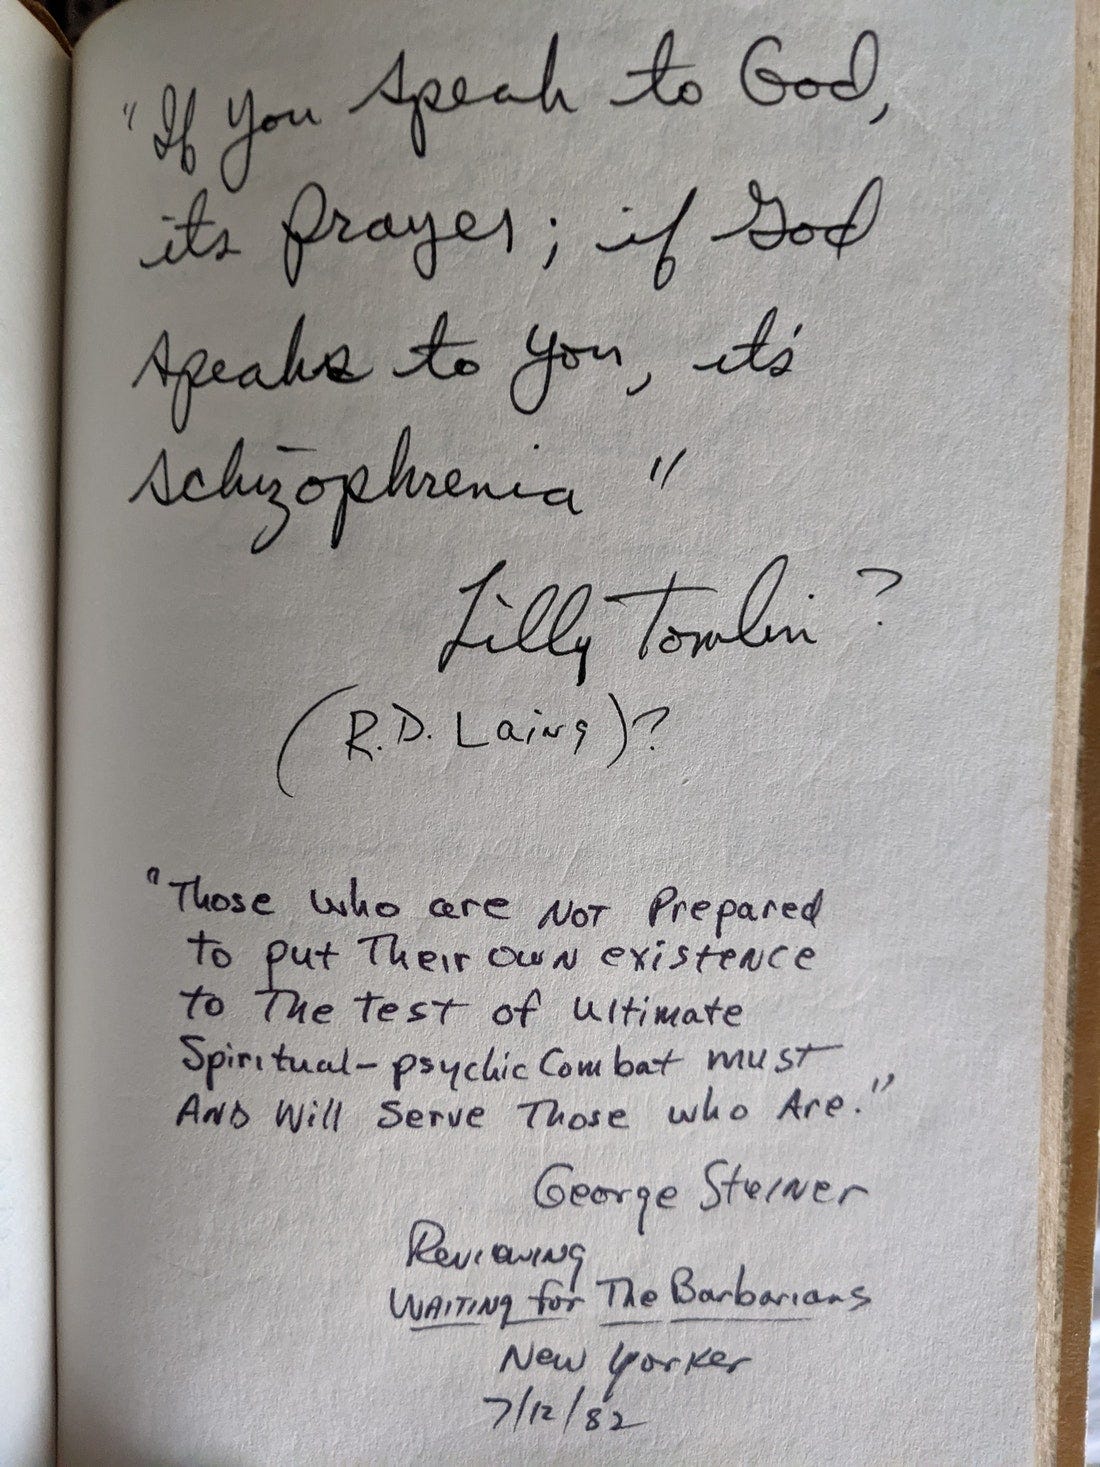 "If you speak to God,
its prayer; if God
speaks to you, it's
schizophrenia"
Lilly Tomlin?
(R.D. Laing)?
"Those who are NOT Prepared
to put Their own existence
to The test of ultimate
Spiritual-psychic Combat must
AND Will Serve Those who Are."
George Steiner
Reviewing
Waiting for The Barbarians
New Yorker
7/12/82